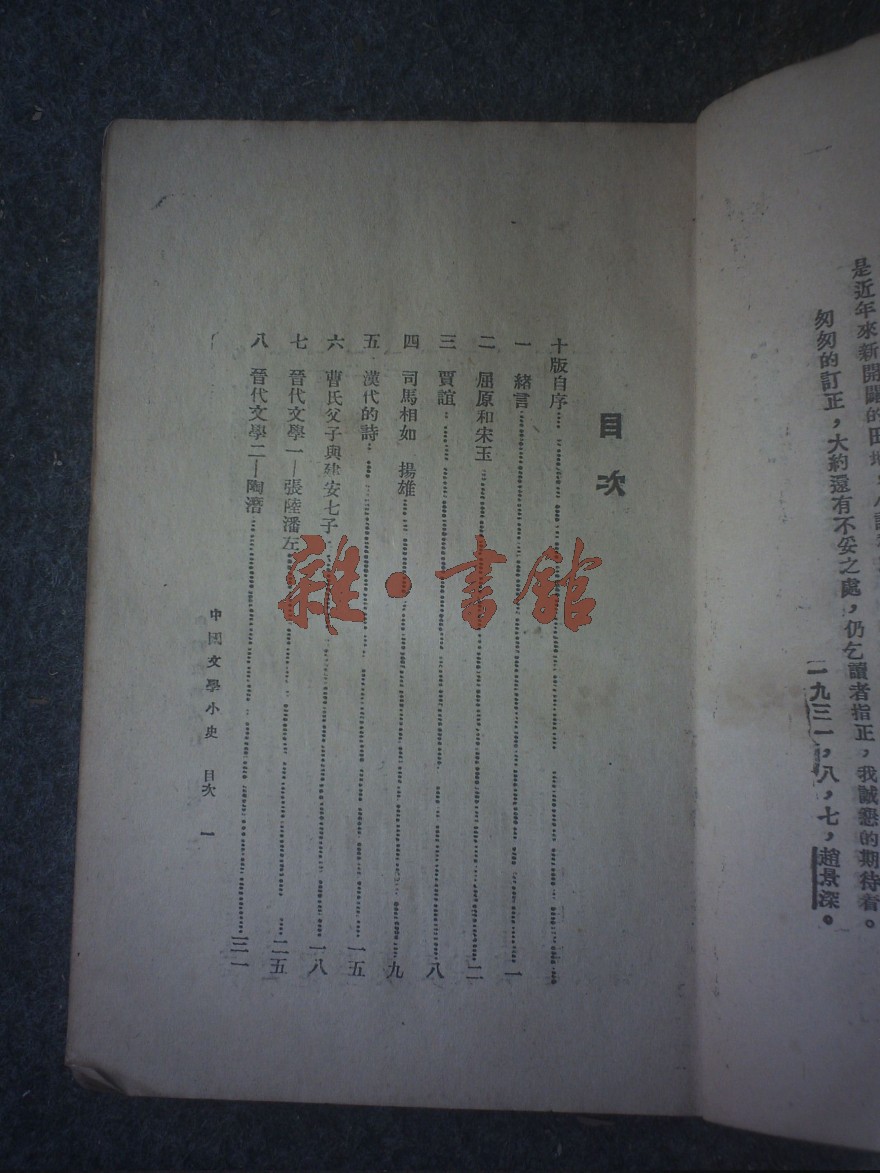 是近年來新開闢的田地，
匆匆的訂正，大約還有不妥之處，仍乞讀者指正，我誠懇的期待着。
一九三一，八，七，趙景深。
目次
十版自序
一 緒言 一
二 屈原和宋玉 二
三 賈誼 八
四 司馬相如 揚雄 九
五 漢代的詩 一五
六 曹氏父子與建安七子 一八
七 晉代文學一—張陸潘左 二五
八 晉代文學二—陶潛 三一
中國文學小史 目次 一
雜·書館